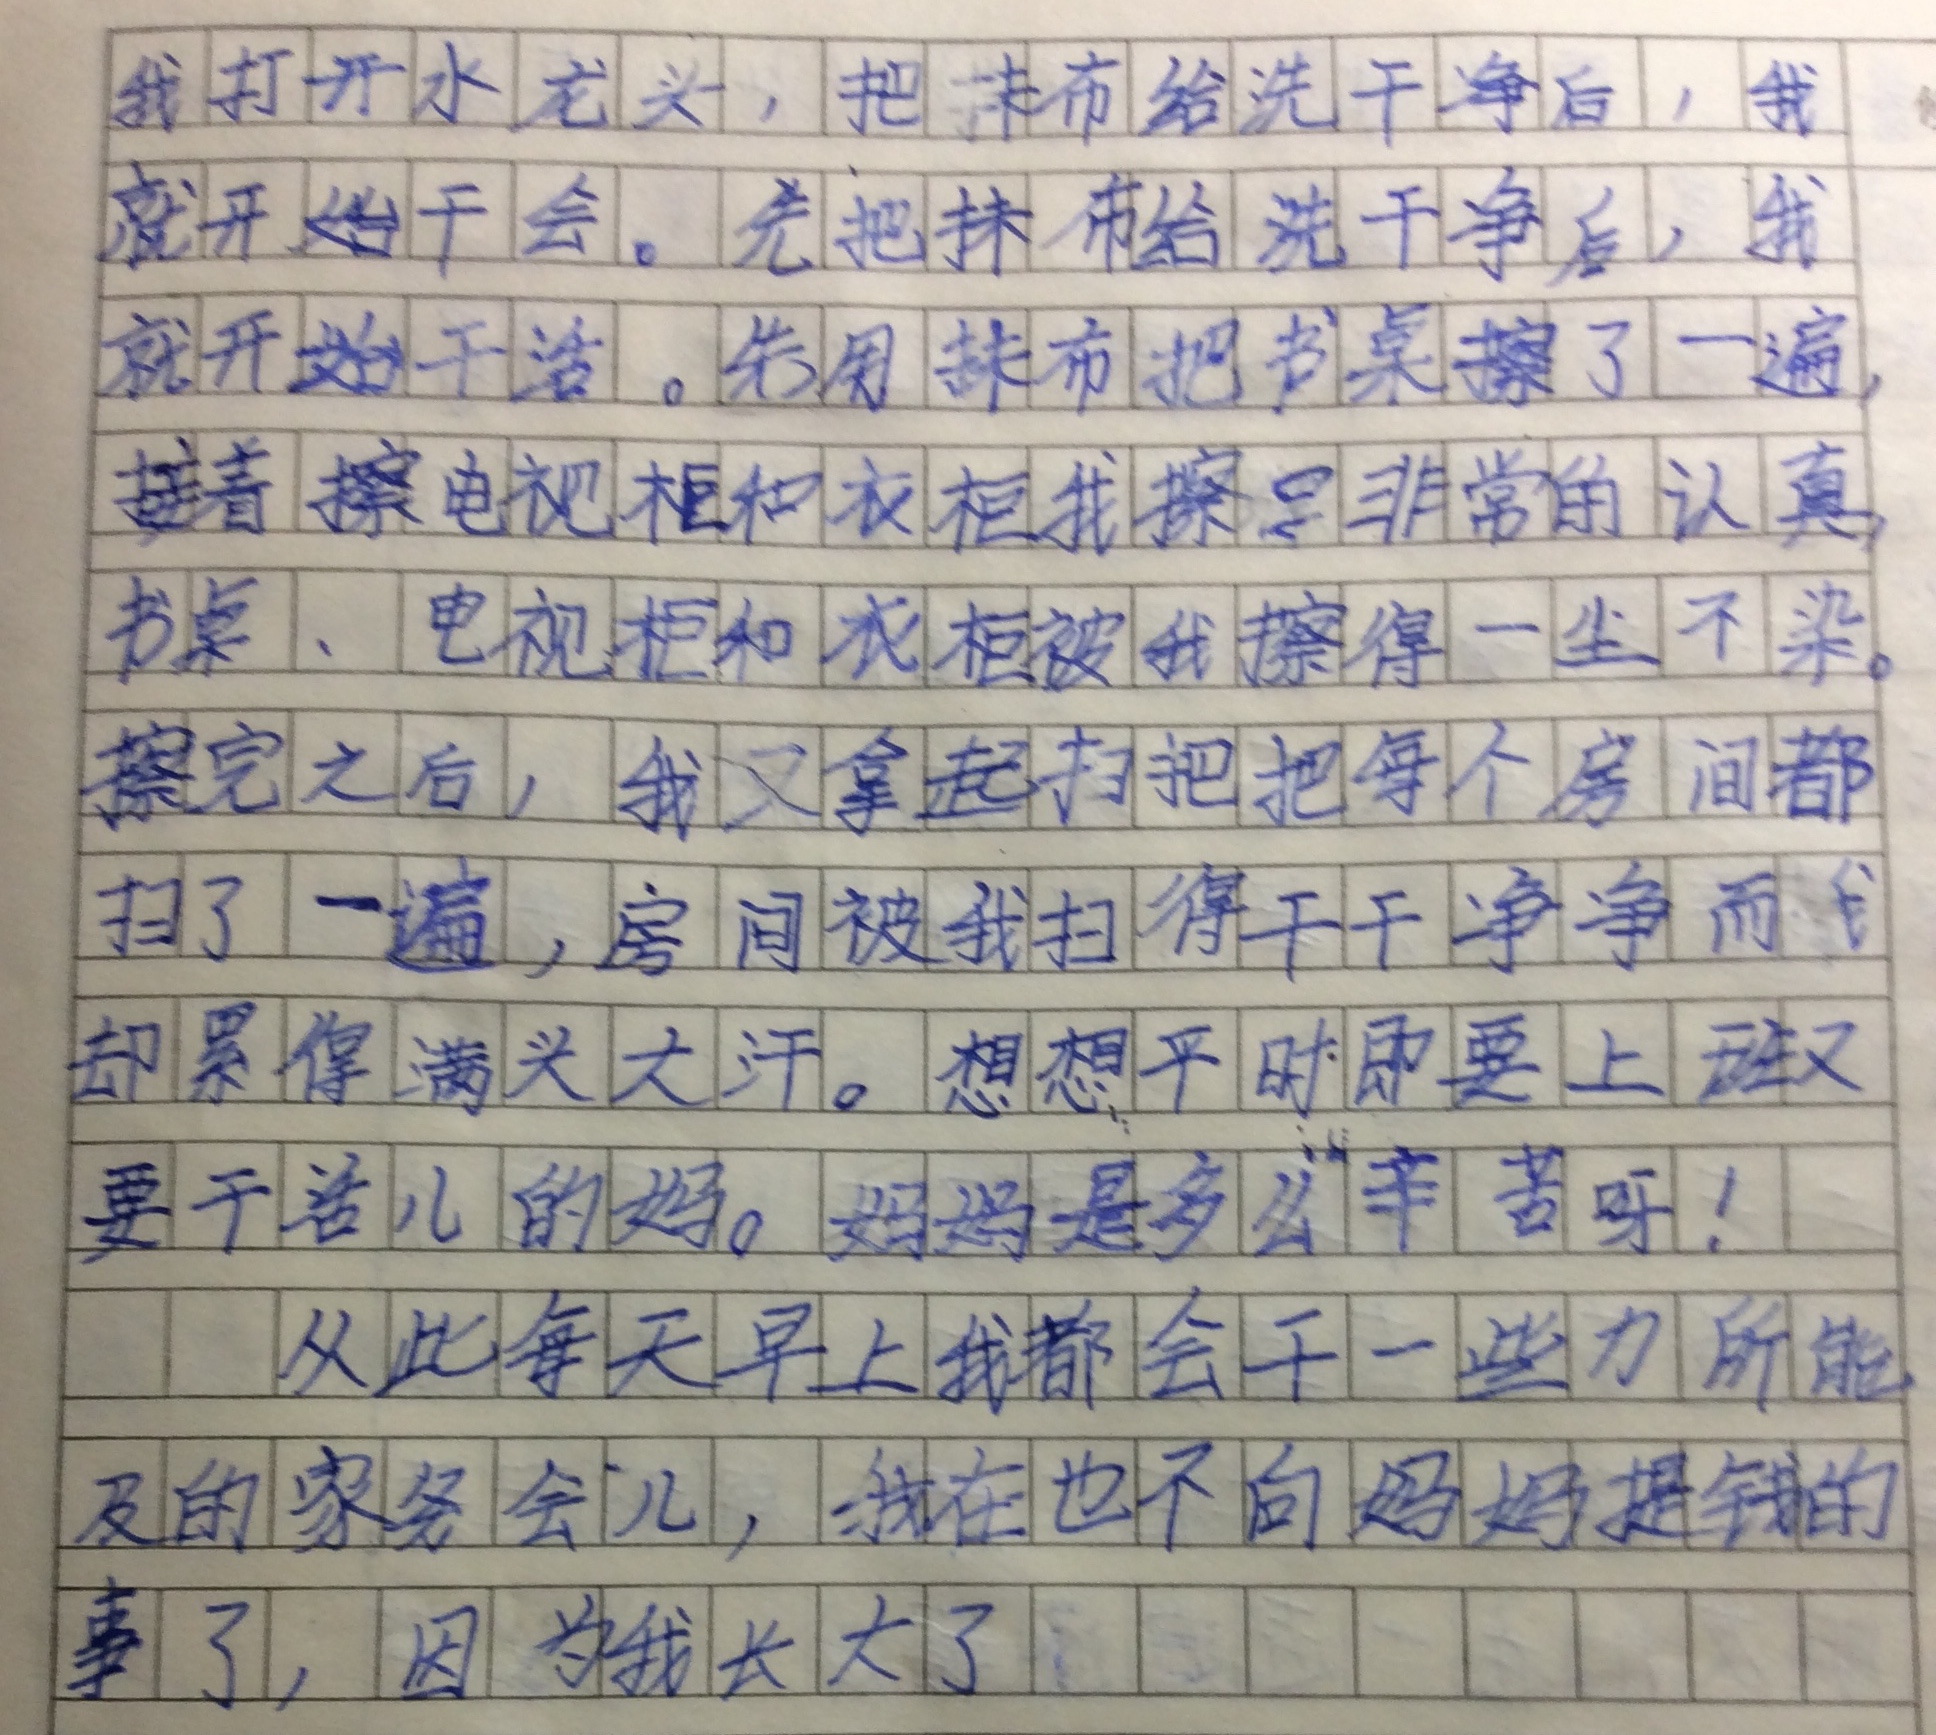 我打开水龙头，把抹布给洗干净后，我
就开始干会。先把抹布给洗干净后，我
就开始干活。先用抹布把书桌擦了一遍，
接着擦电视柜和衣柜我擦是非常的认真，
书桌、电视柜和衣柜被我擦得一尘不染。
擦完之后，我又拿起扫把把每个房间都
扫了一遍，房间被我扫得干干净净而我
却累得满头大汗。想想平时即要上班又
要干活儿的妈。妈妈是多么辛苦呀！
从此每天早上我都会干一些力所能
及的家务会儿，我在也不向妈妈提钱的
事了，因为我长大了